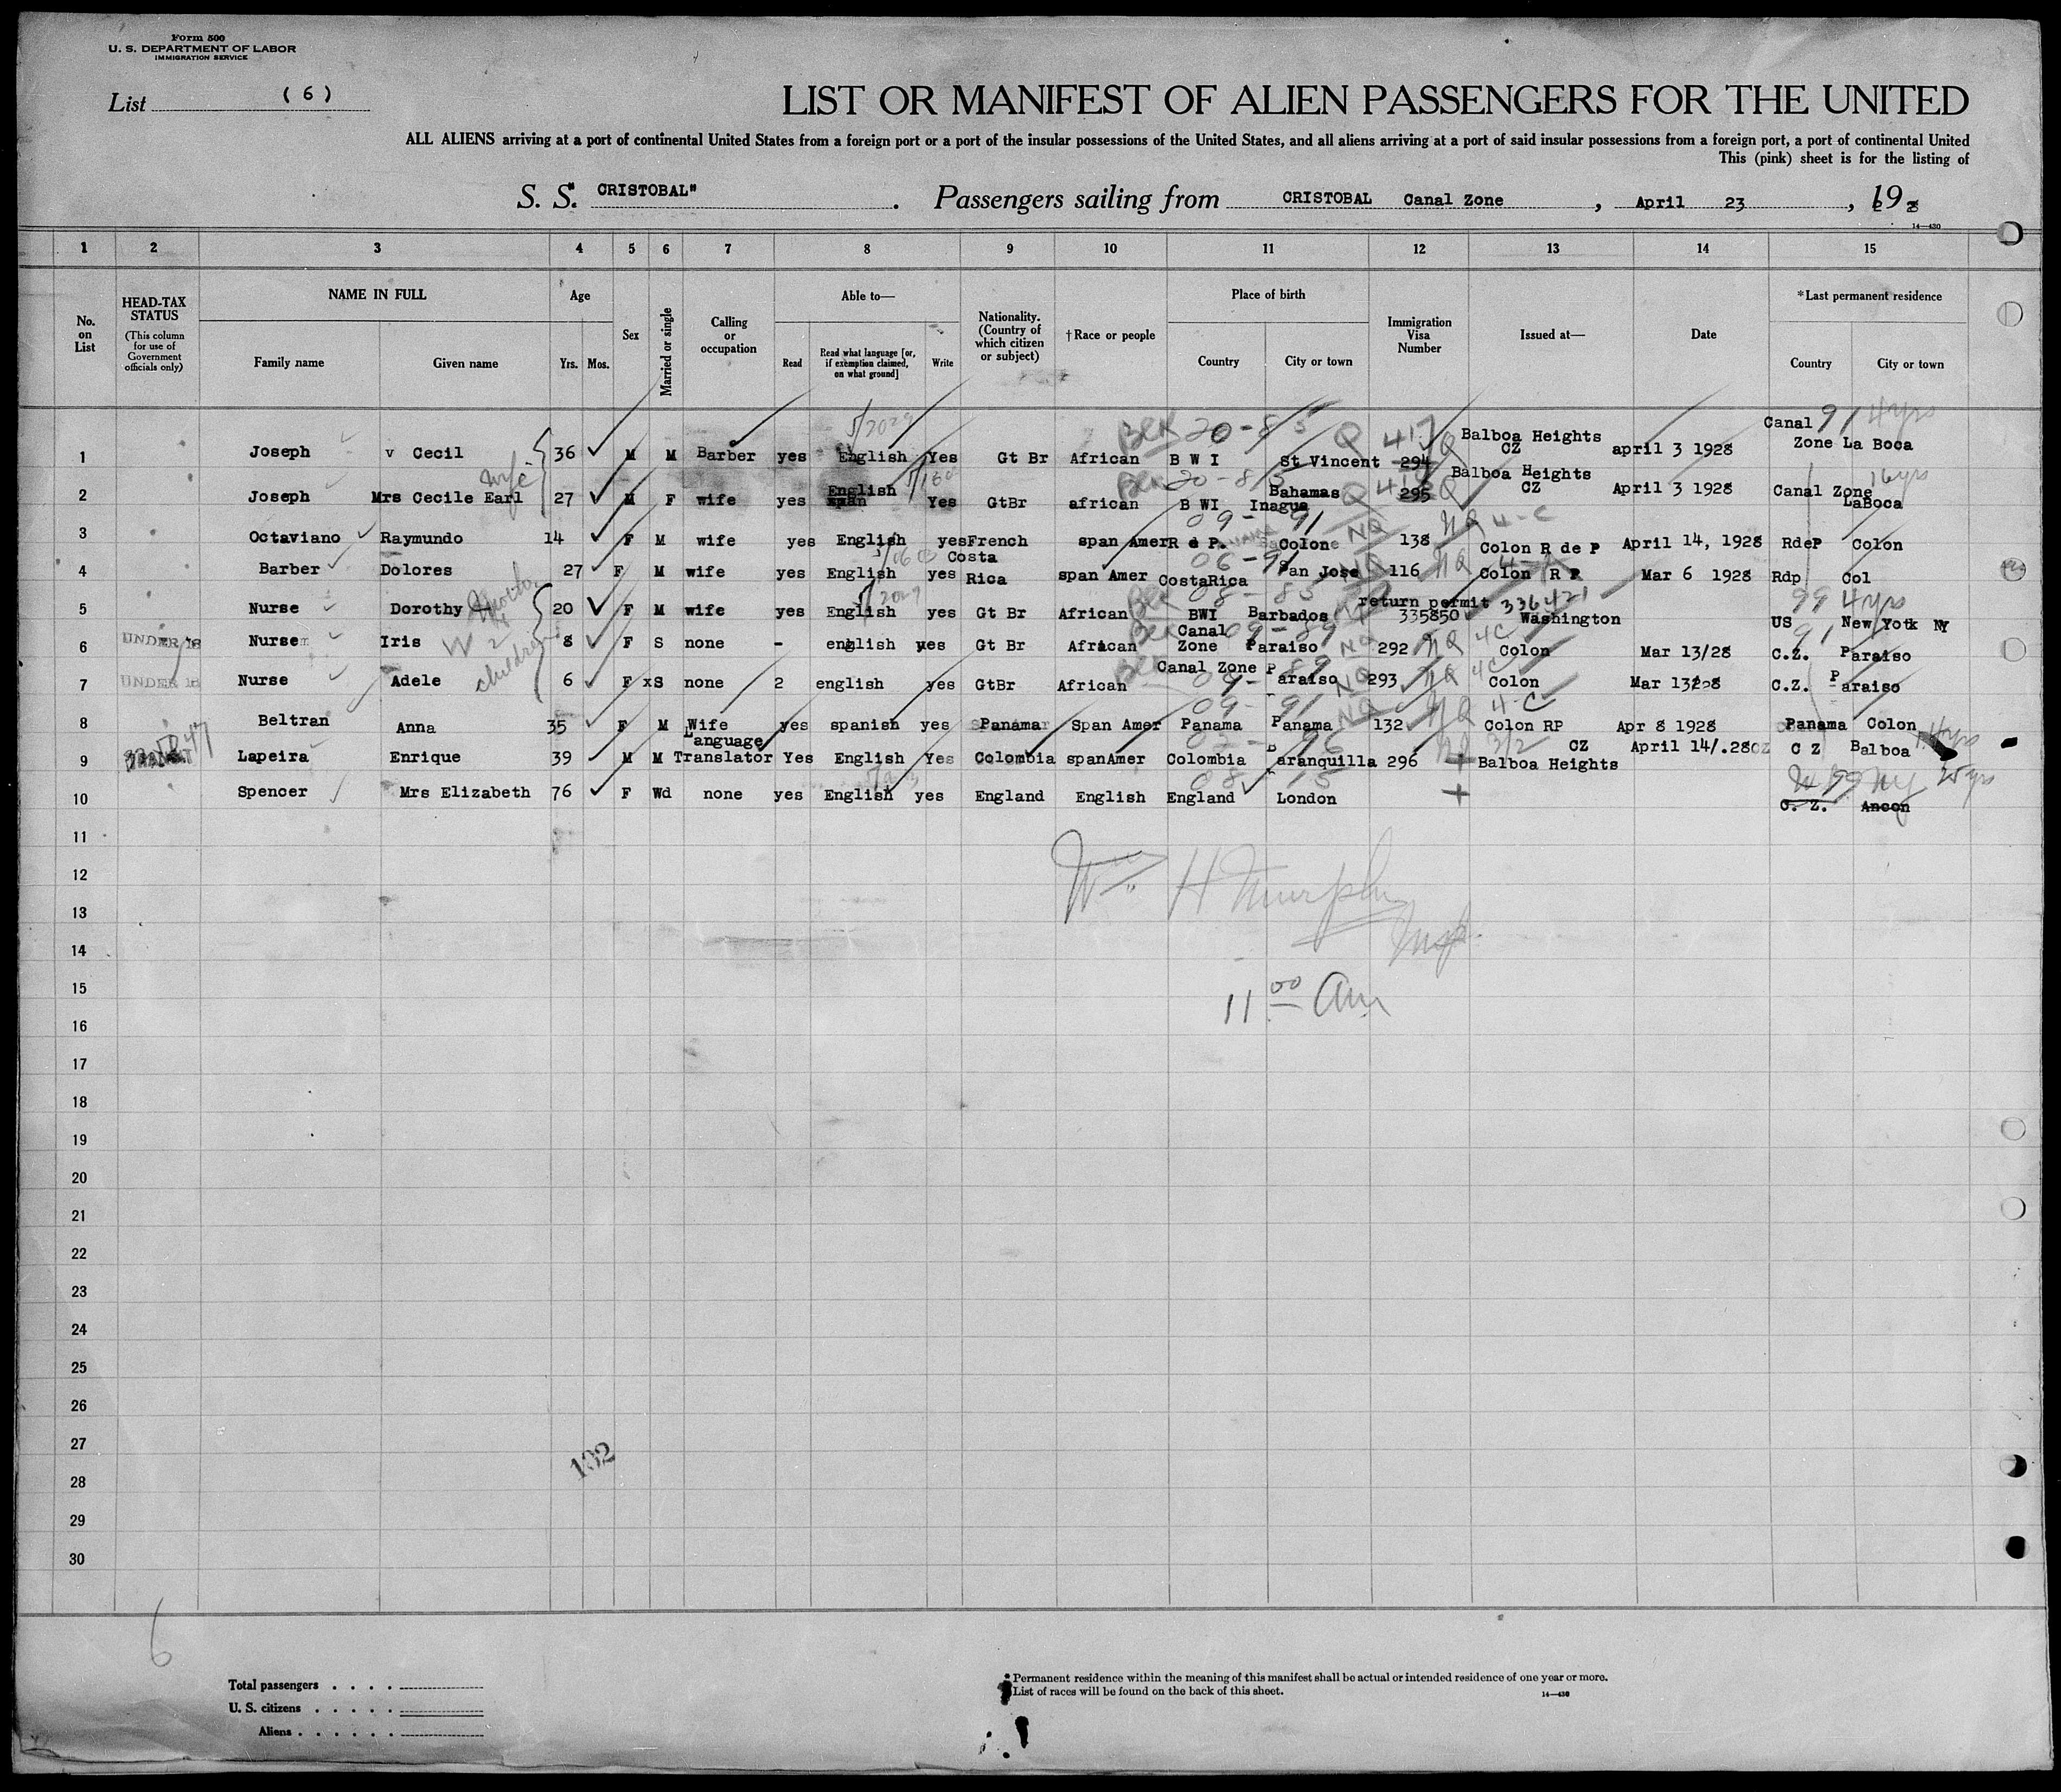 Form 500
U. S. DEPARTMENT OF LABOR
IMMIGRATION SERVICE
List ( 6 )
LIST OR MANIFEST OF ALIEN PASSENGERS FOR THE UNITED
ALL ALIENS arriving at a port of continental United States from a foreign port or a port of the insular possessions of the United States, and all aliens arriving at a port of said insular possessions from a foreign port, a port of continental United
This (pink) sheet is for the listing of
S. S. "CRISTOBAL". Passengers sailing from CRISTOBAL Canal Zone, April 23, 192 8
14—430
1 2 3 4 5 6 7 8 9 10 11 12 13 14 15
No. on List
HEAD-TAX STATUS
(This column for use of Government officials only)
NAME IN FULL
Family name Given name
Age
Yrs. Mos.
Sex
Married or single
Calling or occupation
Able to—
Read Read what language [or, if exemption claimed, on what ground] Write
Nationality. (Country of which citizen or subject)
†Race or people
Place of birth
Country City or town
Immigration Visa Number
Issued at—
Date
*Last permanent residence
Country City or town
1 Joseph v Cecil 36 M M Barber yes English Yes Gt Br African B W I St Vincent 294 Balboa Heights CZ april 3 1928 Canal Zone La Boca
BER 20-85 Q 417 Q 91 4yrs
2 Joseph Mrs Cecile Earl wife 27 M F wife yes English Yes GtBr african B WI Bahamas Inagua 295 Balboa Heights CZ April 3 1928 Canal Zone LaBoca
BER 20-85 Q 418 Q 16yrs
3 Octaviano Raymundo 14 F M wife yes English yes French span Amer R d P. Colon 138 Colon R de P April 14, 1928 RdeP Colon
09-91 NQ NQ 4-C
4 Barber Dolores 27 F M wife yes English yes Costa Rica span Amer CostaRica San Jose 116 Colon R P Mar 6 1928 Rdp Col
06-91 NQ
5 Nurse Dorothy 20 F M wife yes English yes Gt Br African BWI Barbados return permit 335850 336421 Washington US New York NY
BER 08-85 99 4yrs
6 UNDER 16 Nurse Iris 8 F S none - english yes Gt Br African Canal Zone Paraiso 292 Colon Mar 13/28 C.Z. Paraiso
W 2 children BER 09-89 NQ NQ 4C 91
7 UNDER 16 Nurse Adele 6 F xS none 2 english yes GtBr African Canal Zone Paraiso 293 Colon Mar 13 28 C.Z. Paraiso
BER 09-89 NQ NQ 4C
8 Beltran Anna 35 F M Wife yes spanish yes Panama Span Amer Panama Panama 132 Colon RP Apr 8 1928 Panama Colon
09-91 NQ NQ 4-C
9 Lapeira Enrique 39 M M Language Translator Yes English Yes Colombia spanAmer Colombia Baranquilla 296 Balboa Heights CZ April 14/.28 C Z Balboa
3/2
10 Spencer Mrs Elizabeth 76 F Wd none yes English yes England English England London C. Z. Ancon
08-15 99 NY 25yrs
11
12
Wm H Murphy
13
14
Insp.
15
11 00 Am
16
17
18
19
20
21
22
23
24
25
26
27
102
28
29
30
6
Total passengers
U. S. citizens
Aliens
*Permanent residence within the meaning of this manifest shall be actual or intended residence of one year or more.
List of races will be found on the back of this sheet.
14—430